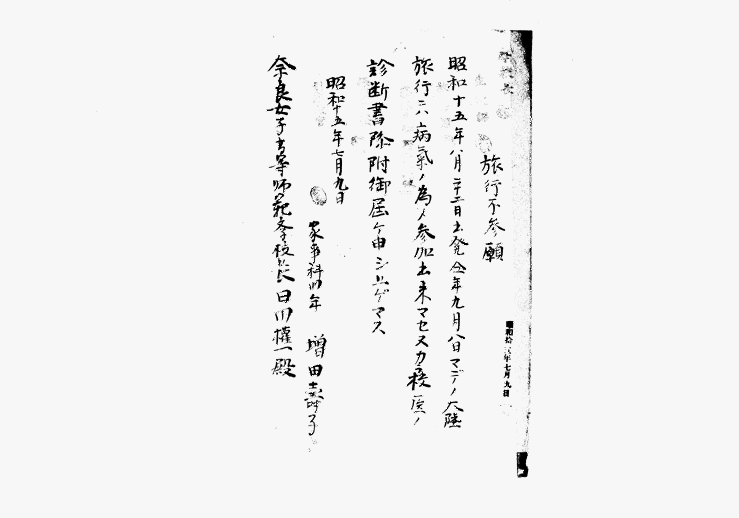 昭和拾五年七月九日
旅行不参願
昭和十五年八月二十二日出発仝年九月八日マデノ大陸
旅行ニハ病氣ノ為メ参加出来マセヌカラ校医ノ
診断書除附御届ケ申シ上ゲマス
昭和十五年七月九日
家事科四年 増田壽子
奈良女子高等師範学校長 日田權一殿